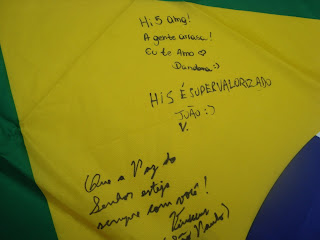 Hi5 amg!
A gente arrasa!
Eu te Amo ♡
Dandara :)
Hi5 É SUPERVALORIZADO
JOÃO :)
V.
Que a Paz do
Senhor esteja
sempre com você!
(São Paulo)